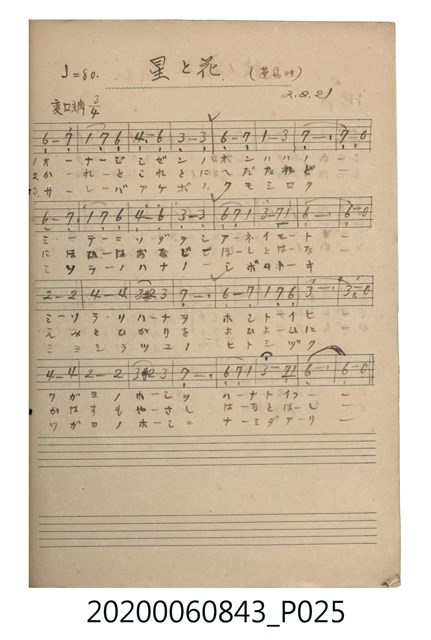 ♩=80. 星と花 (藤村詩)
2.8.21
変ロ調 3/4
6－7 176 4.6 3－3 6－7 1－3 7－. 7－0
1. オーナージシゼンノ オンハハノー
2. かーれーとこれとに へだたれど
3. サーレーバアケボノ クモシロク
6－7. 176 4－6 3－3 671 3－71 6－. 6－0
ミーテーニソダチシ アネイモートー
にほひーはおなじ ほしとはーなー
ミソラーノハナノ シボムトーキ
2－2 4－4 3#23 7－. 6－7 176 3－. 3－0
ミーソラーノハナヲ ホシトイヒ
えみとひかりを よひよひに
ミヨシラツユノ ヒトシヅク
4－4 2－2 3#23 7－. 671 3－71 6－. 6－0
ワガヨノホーシヲ ハーナトイフー
かはすもやさし はーなとほーしー
ワガヨノホーシニ ナーミダアーリー
20200060843_P025